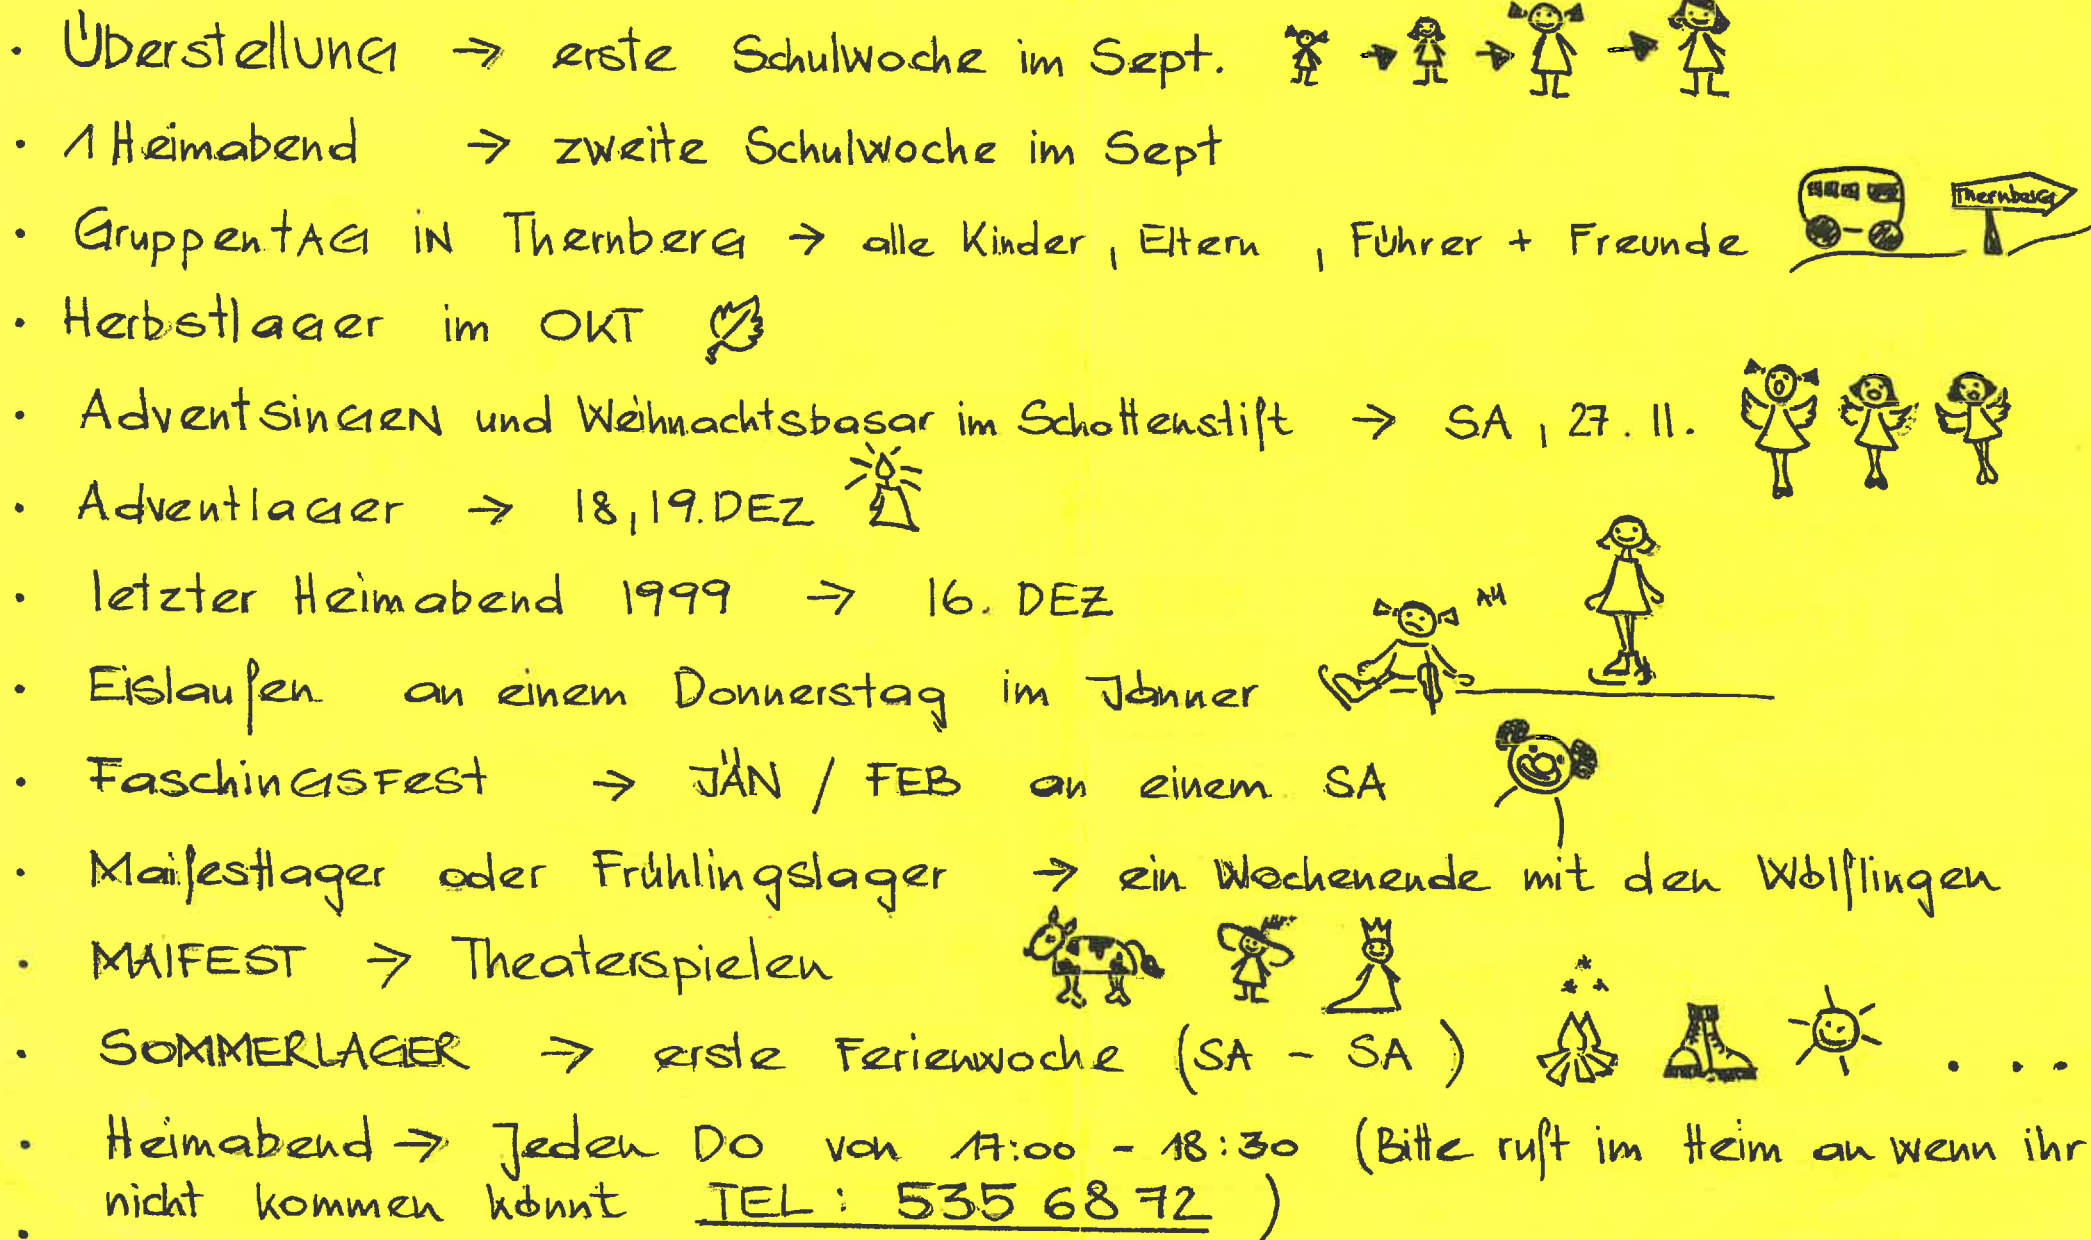 · Überstellung → erste Schulwoche im Sept.
· 1 Heimabend → zweite Schulwoche im Sept
· Gruppentag in Thernberg → alle Kinder, Eltern, Führer + Freunde
Thernberg
· Herbstlager im OKT
· Adventsingen und Weihnachtsbasar im Schottenstift → SA, 27. 11.
· Adventlager → 18, 19. DEZ
· letzter Heimabend 1999 → 16. DEZ
AU
· Eislaufen an einem Donnerstag im Jänner
· Faschingsfest → JÄN / FEB an einem SA
· Maifestlager oder Frühlingslager → ein Wochenende mit den Wölflingen
· MAIFEST → Theaterspielen
· SOMMERLAGER → erste Ferienwoche (SA - SA) ...
· Heimabend → Jeden DO von 17:00 - 18:30 (Bitte ruft im Heim an wenn ihr
nicht kommen könnt TEL: 535 68 72)
·